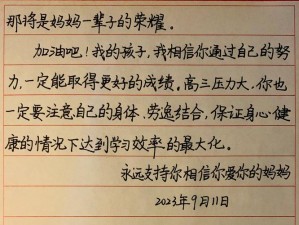 那将是妈妈一辈子的荣耀。
加油吧！我的孩子，我相信你通过自己的努
力，一定能取得更好的成绩。高三压力大，你也
一定要注意自己的身体，劳逸结合，保证身心健
康的情况下达到学习效率的最大化。
永远支持你相信你爱你的妈妈
2023年9月11日